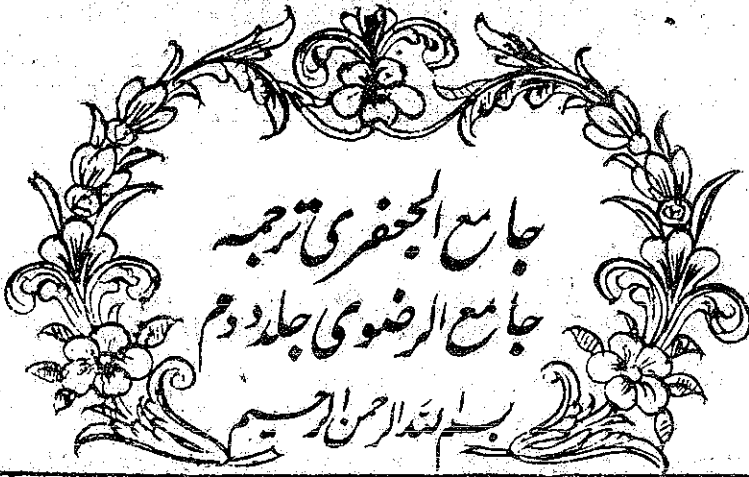 جامع الجعفری ترجمہ
جامع الرضوی جلد دوم
بسم اللہ الرحمن الرحیم